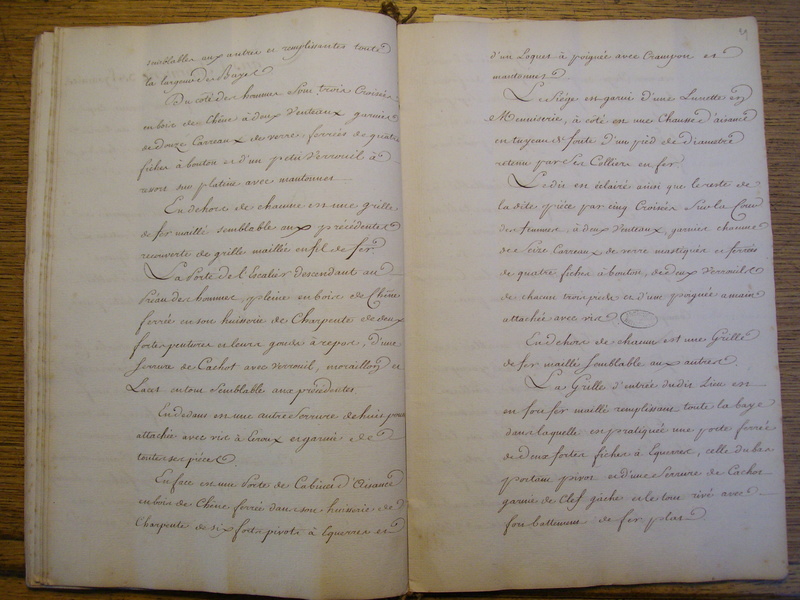 semblables aux autres et remplissantes toute
la largeur des Bayes
Du côté des hommes sont trois Croisées
en bois de Chêne à deux Venteaux garnies
de douze Carreaux de verre, ferrées de quatre
fiches à bouton et d'un petit Verrouil à
ressort sur platine avec mantonnet
En dehors de chacune est une grille
de fer maillé semblable aux précédentes
recouverte de grille maillée en fil de fer
La Porte de l'Escalier descendant au
Préau des hommes, pleine en bois de Chêne
ferrée en son huisserie de Charpente de deux
fortes pentures et leurs gonds à repos, d'une
serrure de Cachot avec verrouil, moraillon et
Lacet en tout semblable aux précédentes
En dedans est une autre Serrure de huit pouces
attachée avec vis à Ecroux et garnie de
toutes ses pièces
En face est une Porte de Cabinet d'Aisance
en bois de Chêne ferrée dans son huisserie de
Charpente de six forts pivots à Equerres et
29
d'un Loquet à poignée avec Crampon et
mantonnet
Le Siège est garni d'une Lunette en
Menuiserie, à côté est une Chausse d'aisance
en tuyeau de fonte d'un pied de diamètre
retenu par Ses Colliers en fer
Le dit est éclairé ainsi que le reste de
la dite pièce par cinq Croisées Sur la Cour
des femmes, à deux Venteaux, garnies chacune
de Seize Carreaux de verre mastiqués et ferrées
de quatre fiches à bouton, de deux Verrouils
de chacun trois pieds et d'une poignée a main
attachée avec vis
En dehors de chacune est une Grille
de fer maillé Semblable aux autres
La Grille d'entrée dudit Lieu est
en fort fer maillé remplissant toute la baye
dans laquelle est pratiquée une porte ferrée
de deux fortes fiches à Equerres, celle du bas
portant pivot et d'une Serrure de Cachot
garnie de Clef gâche et le tout rivé avec
fort battement de fer plat